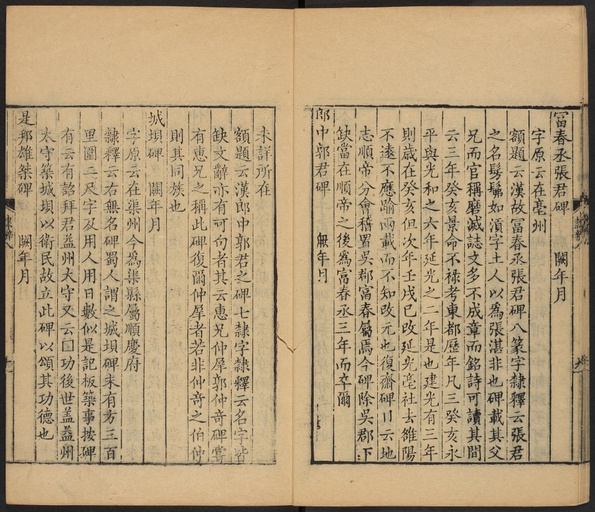 富春丞張君碑　闕年月
字原云在亳州
額題云漢故富春丞張君碑八篆字隸釋云張君
之名髣髴如湏字土人以為張湛非也碑載其父
兄而官稱磨滅誌文多不成章而銘詩可讀其間
云三年癸亥景命不禄考東都歷年凡三癸亥永
平與光和之六年延光之二年是也建光有三年
則歳在癸亥但次年壬戌已改延光亳社去雒陽
不逺不應踰兩載而不知改元也復齋碑目云地
志順帝分會稽置吳郡富春屬焉今碑除吳郡下
缺當在順帝之後為富春丞三年而卒爾
郎中郭君碑　無年月
未詳所在
額題云漢郎中郭君之碑七隸字隸釋云名字皆
缺文辭亦有可句者其云惠兄仲犀郭仲奇碑嘗
有惠兄之稱此碑復爾仲犀者若非仲奇之伯仲
則其同族也
城垻碑　闕年月
字原云在渠州今為渠縣屬順慶府
隸釋云右無名碑蜀人謂之城垻碑末有方三百
里圖二尺字及用人用日數似是記板築事按碑
有云有詔拜君益州太守又云囙功後世蓋益州
太守築城垻以衛民故立此碑以頌其功德也
是邦雄桀碑　闕年月